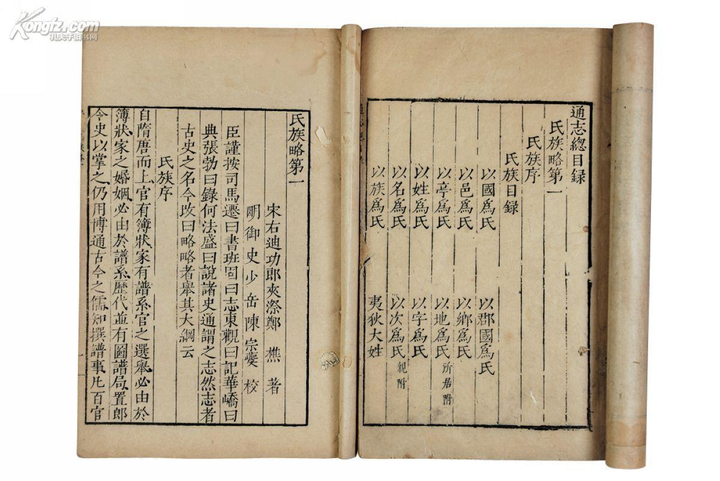 Kongfz.com
通志總目錄
氏族略第一
氏族序
氏族目錄
以國爲氏 以郡國爲氏
以邑爲氏 以鄉爲氏
以亭爲氏 以地爲氏 所居附
以姓爲氏 以字爲氏
以名爲氏 以次爲氏 親附
以族爲氏 夷狄大姓
氏族略第一
宋右迪功郎夾漈鄭樵著
明御史少岳陳宗夔校
臣謹按司馬遷曰書班固曰志東觀曰記華嶠曰
典張勃曰錄何法盛曰說諸史通謂之志然志者
古史之名今改曰略略者舉其大綱云
氏族序
自隋唐而上官有簿狀家有譜系官之選舉必由於
簿狀家之婚姻必由於譜系歷代並有圖譜局置郎
令史以掌之仍用博通古今之儒知撰譜事凡百官